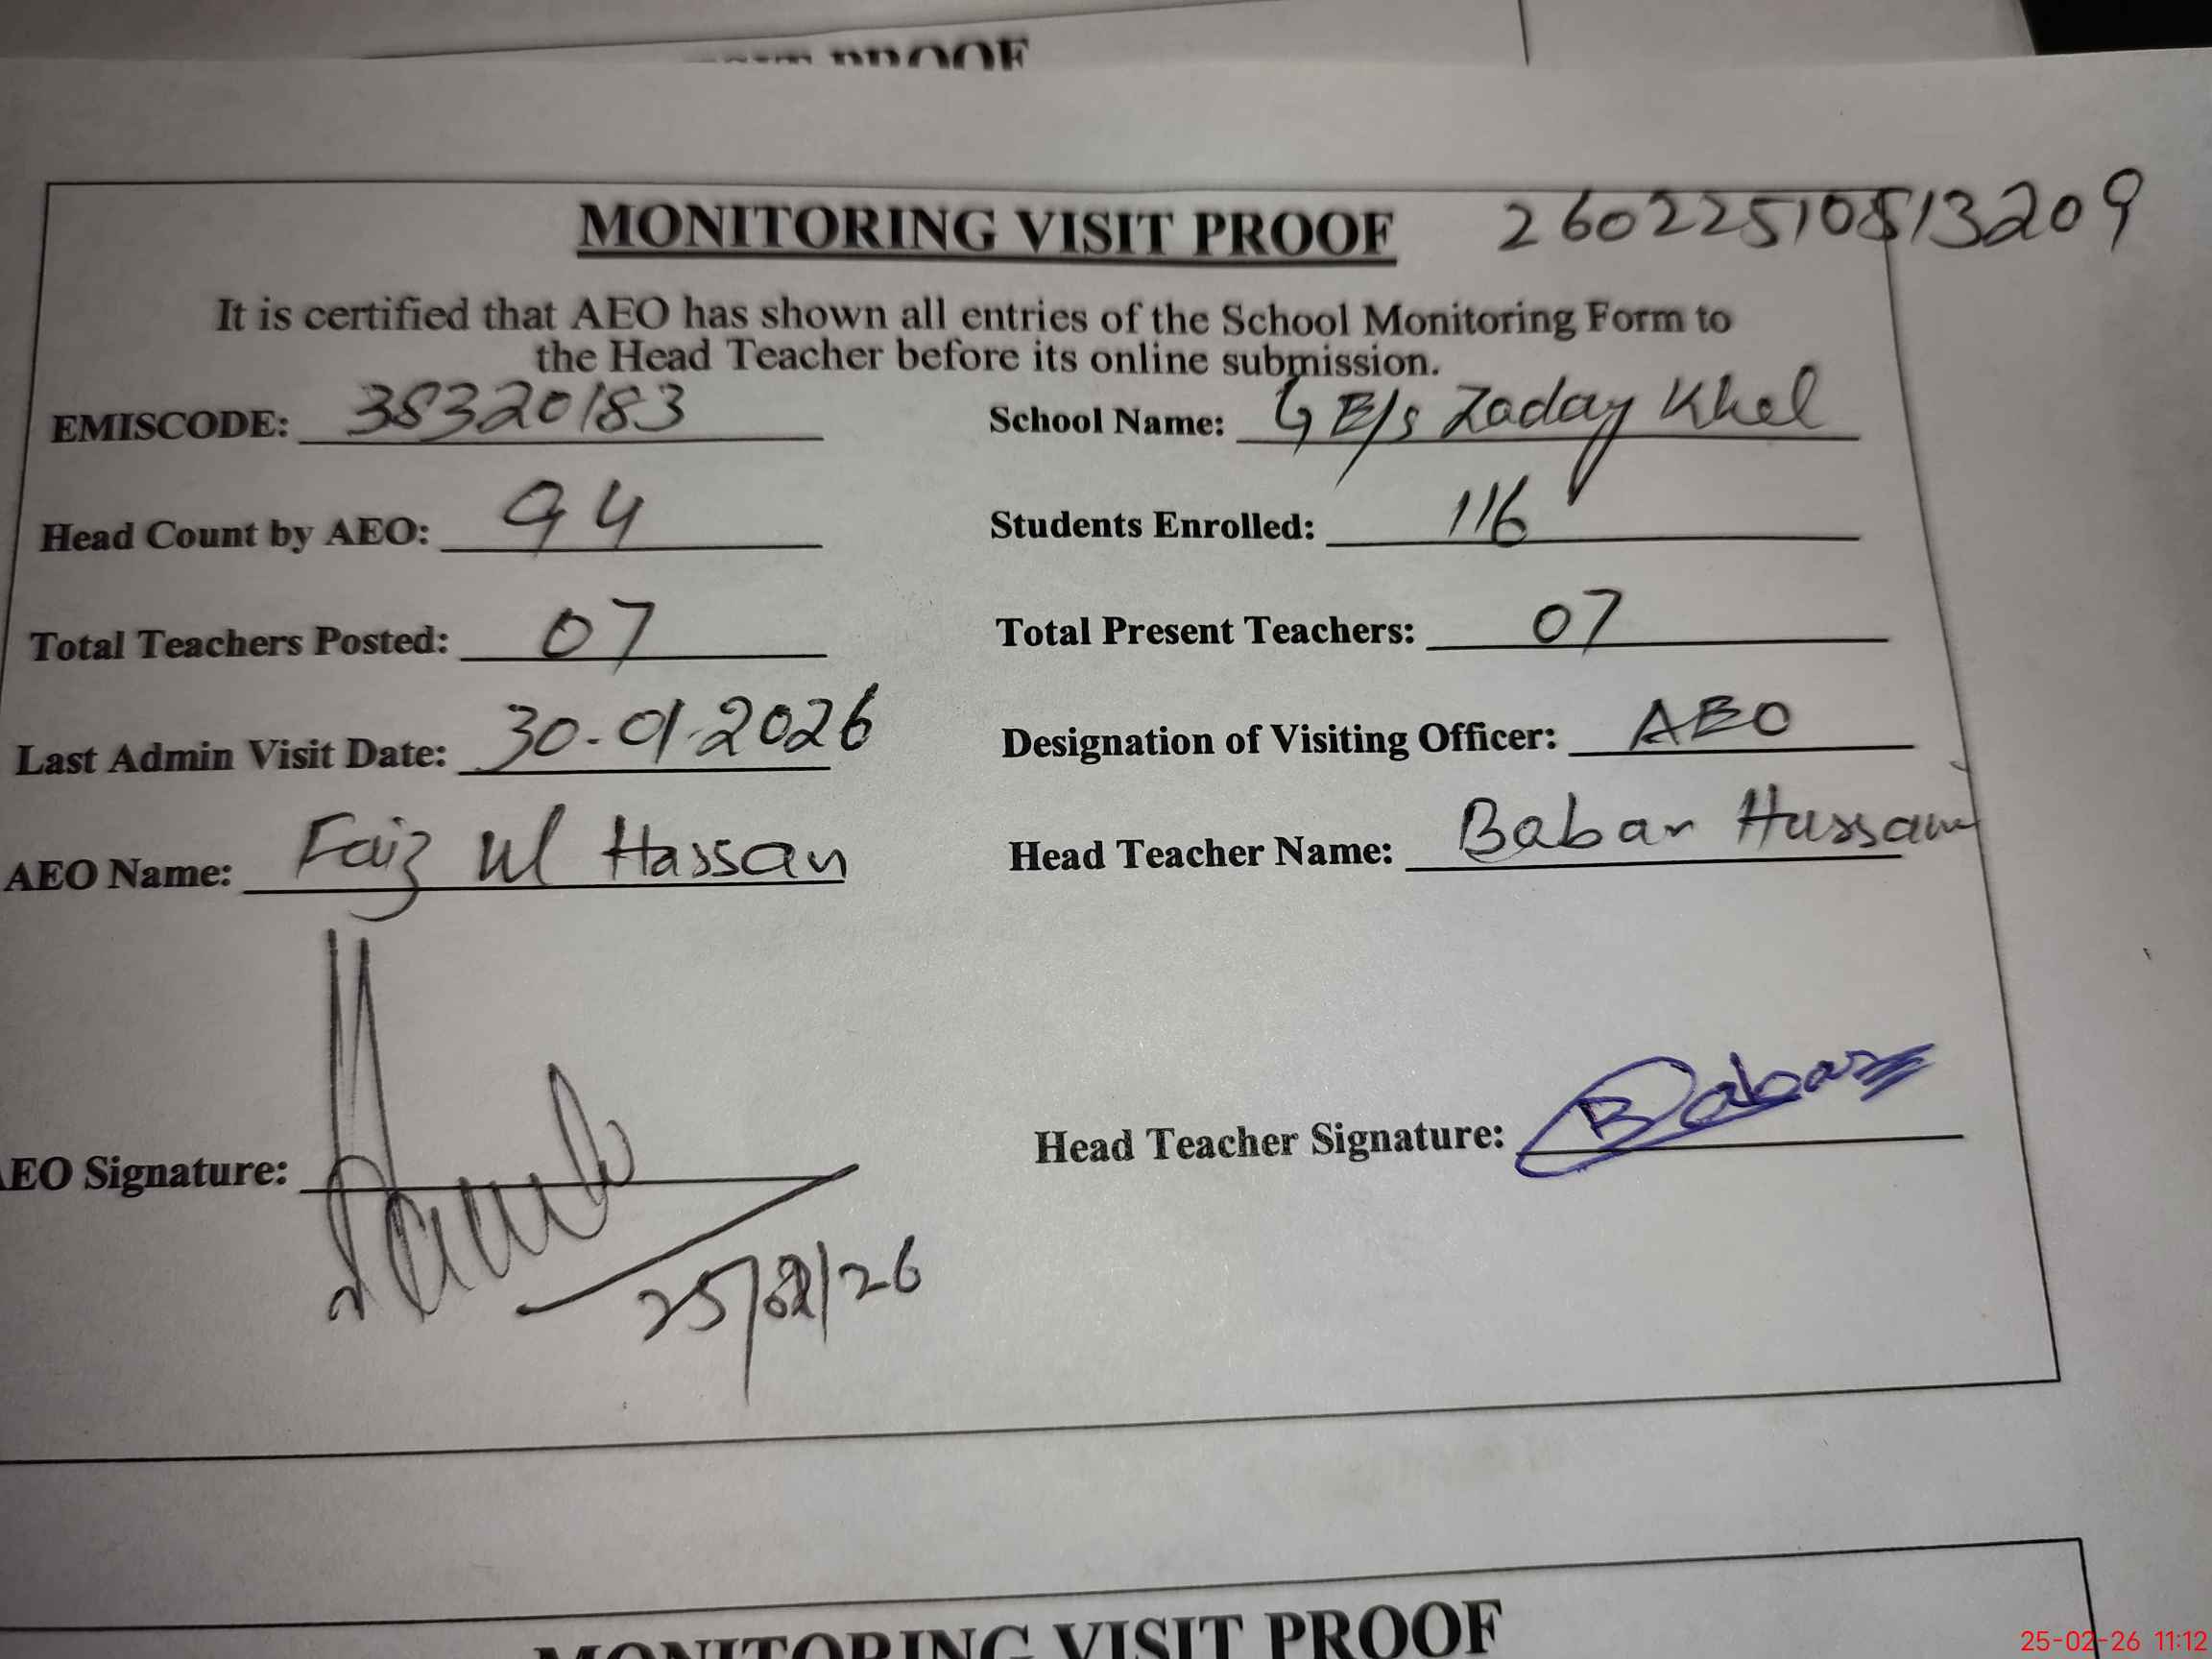 PROOF
MONITORING VISIT PROOF 26022510813209
It is certified that AEO has shown all entries of the School Monitoring Form to
the Head Teacher before its online submission.
EMISCODE: 38320183 School Name: GE/s Zaday Khel
Head Count by AEO: 94 Students Enrolled: 116
Total Teachers Posted: 07 Total Present Teachers: 07
Last Admin Visit Date: 30-01-2026 Designation of Visiting Officer: AEO
AEO Name: Faiz Ul Hassan Head Teacher Name: Babar Hussain
AEO Signature: Head Teacher Signature: Babar
25/02/26
MONITORING VISIT PROOF
25-02-26 11:12